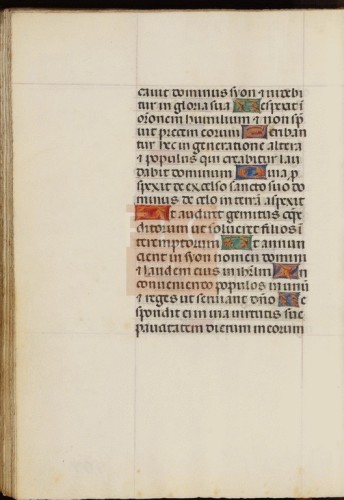 cavit dominus syon et videbi
tur in gloria sua Respexit i
orōnem humilium et non sp
vit precem corum Scriban
tur hec in generatione altera
et populus qui creabitur lau
dabit dominum Quia p
spexit de excelso sancto suo do
minus de celo in terrā aspexit
Ut audiret gemitus cōpe
ditorum ut solveret filios i
teremptorum Ut annun
cient in syon nomen domini
et laudem eius in ihrlm In
conveniendo populos in unū
et reges ut serviant dño Re
spondit ei in via virtutis sue
paucitatem dierum meorum